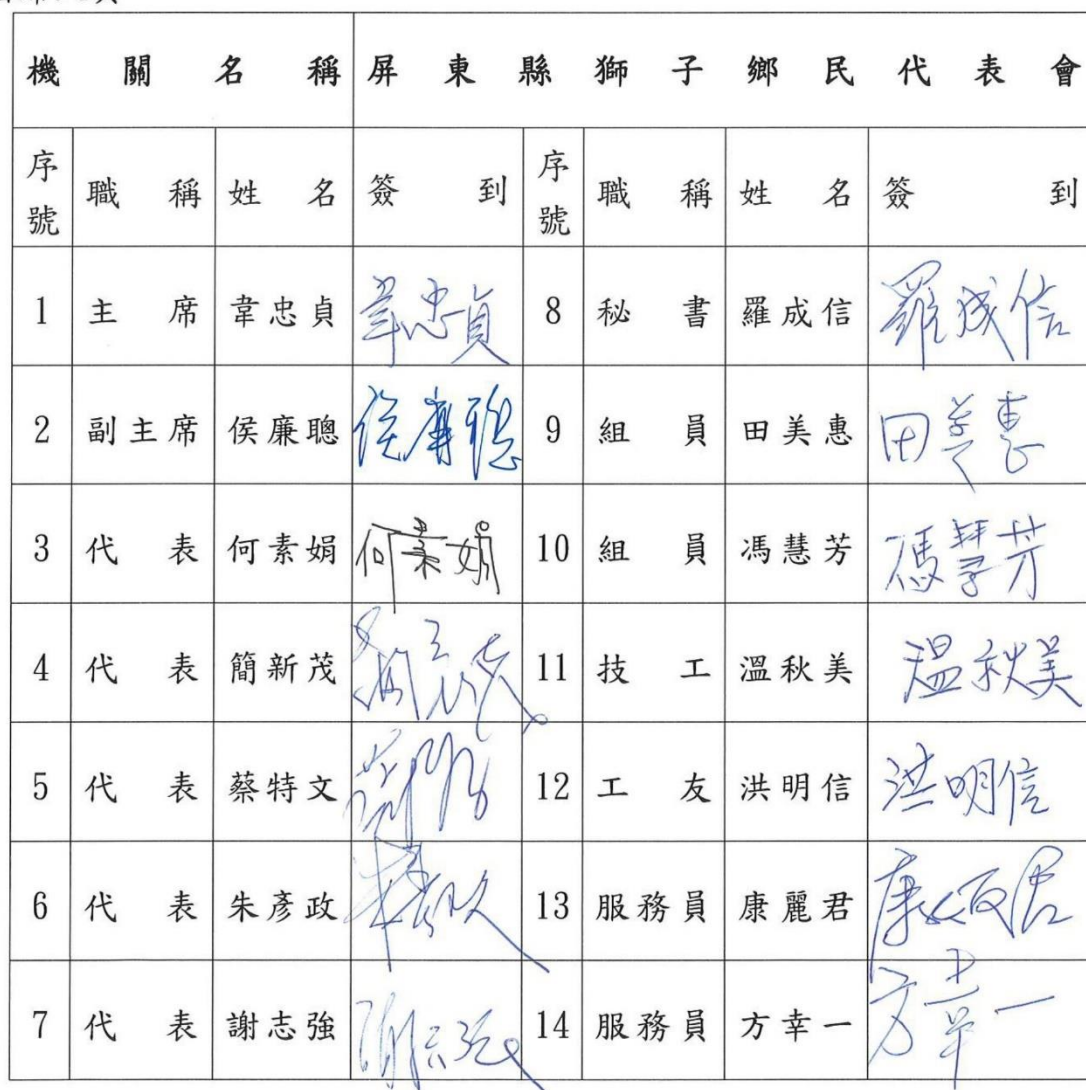 機關名稱 屏東縣獅子鄉民代表會
序號 職稱 姓名 簽到 序號 職稱 姓名 簽到
1 主席 韋忠貞 韋忠貞 8 秘書 羅成信 羅成信
2 副主席 侯廉聰 侯廉聰 9 組員 田美惠 田美惠
3 代表 何素娟 何素娟 10 組員 馮慧芳 馮慧芳
4 代表 簡新茂 11 技工 溫秋美 溫秋美
5 代表 蔡特文 12 工友 洪明信 洪明信
6 代表 朱彥政 13 服務員 康麗君
7 代表 謝志強 14 服務員 方幸一 方幸一